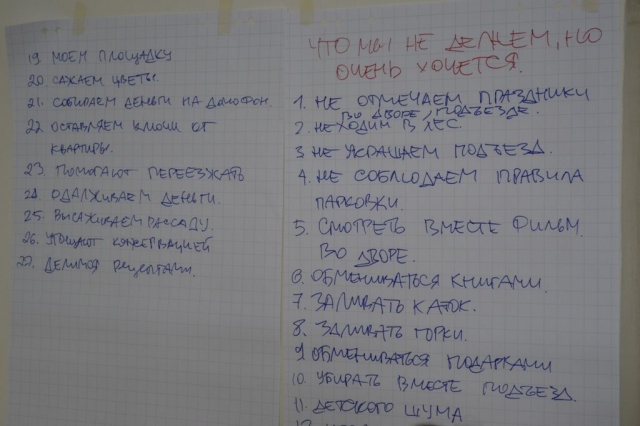 19 МОЕМ ПЛОЩАДКУ
20. САЖАЕМ ЦВЕТЫ.
21. СОБИРАЕМ ДЕНЬГИ НА ДОМОФОН.
22. ОСТАВЛЯЕМ КЛЮЧИ ОТ
КВАРТИРЫ.
23. ПОМОГАЮТ ПЕРЕЕЗЖАТЬ
24. ОДАЛЖИВАЕМ ДЕНЬГИ.
25. ВЫСАЖИВАЕМ РАССАДУ.
26. УГОЩАЮТ КОНСЕРВАЦИЕЙ
27. ДЕЛИМСЯ РЕЦЕПТАМИ.
ЧТО МЫ НЕ ДЕЛАЕМ, НО
ОЧЕНЬ ХОЧЕТСЯ.
1. НЕ ОТМЕЧАЕМ ПРАЗДНИКИ
ВО ДВОРЕ, ПОДЪЕЗДЕ.
2. НЕ ХОДИМ В ЛЕС.
3 НЕ УКРАШАЕМ ПОДЪЕЗД.
4. НЕ СОБЛЮДАЕМ ПРАВИЛА
ПАРКОВКИ.
5. СМОТРЕТЬ ВМЕСТЕ ФИЛЬМ
ВО ДВОРЕ.
6. ОБМЕНИВАТЬСЯ КНИГАМИ.
7. ЗАЛИВАТЬ КАТОК.
8. ЗАЛИВАТЬ ГОРКИ.
9 ОБМЕНИВАТЬСЯ ПОДАРКАМИ
10. УБИРАТЬ ВМЕСТЕ ПОДЪЕЗД.
11. ДЕТСКОГО ШУМА